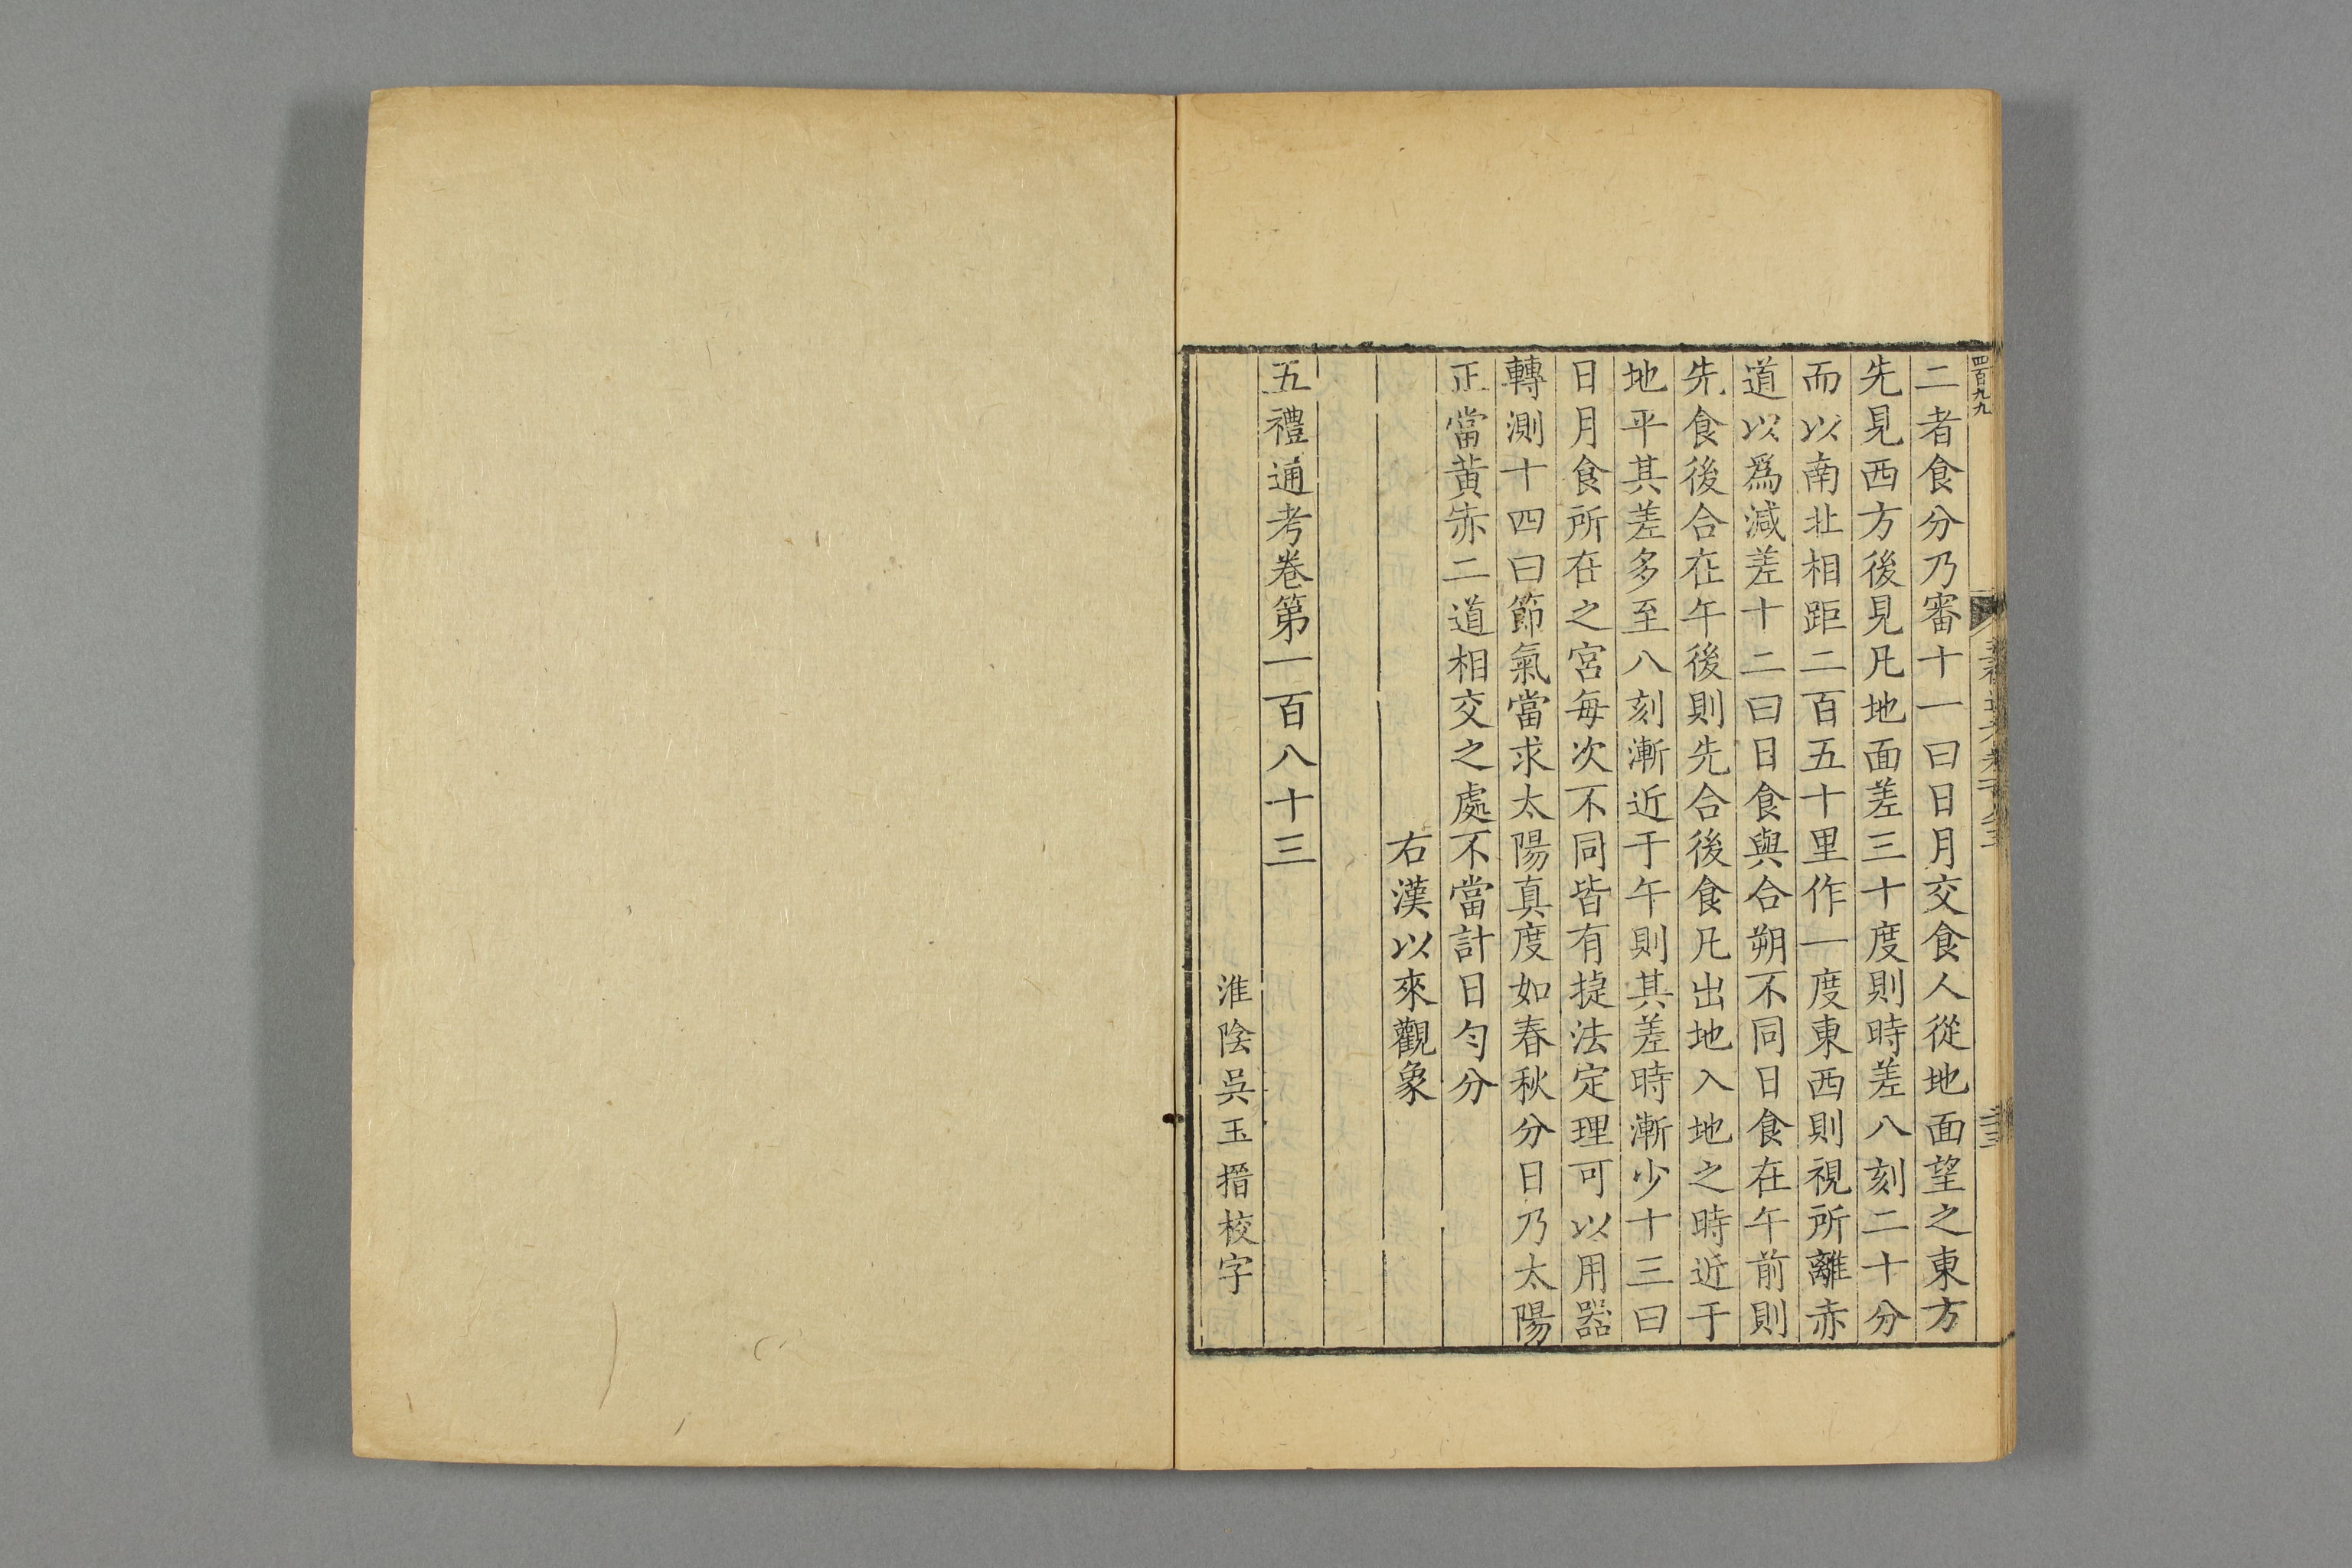 四百九九
二者食分乃審十一曰日月交食人從地面望之東方
先見西方後見凡地面差三十度則時差八刻二十分
而以南北相距二百五十里作一度東西則視所離赤
道以爲減差十二曰日食與合朔不同日食在午前則
先食後合在午後則先合後食凡出地入地之時近于
地平其差多至八刻漸近于午則其差時漸少十三曰
日月食所在之宮每次不同皆有捷法定理可以用器
轉測十四曰節氣當求太陽真度如春秋分日乃太陽
正當黄赤二道相交之處不當計日勻分
右漢以來觀象
五禮通考卷第一百八十三
淮陰吳玉搢校字